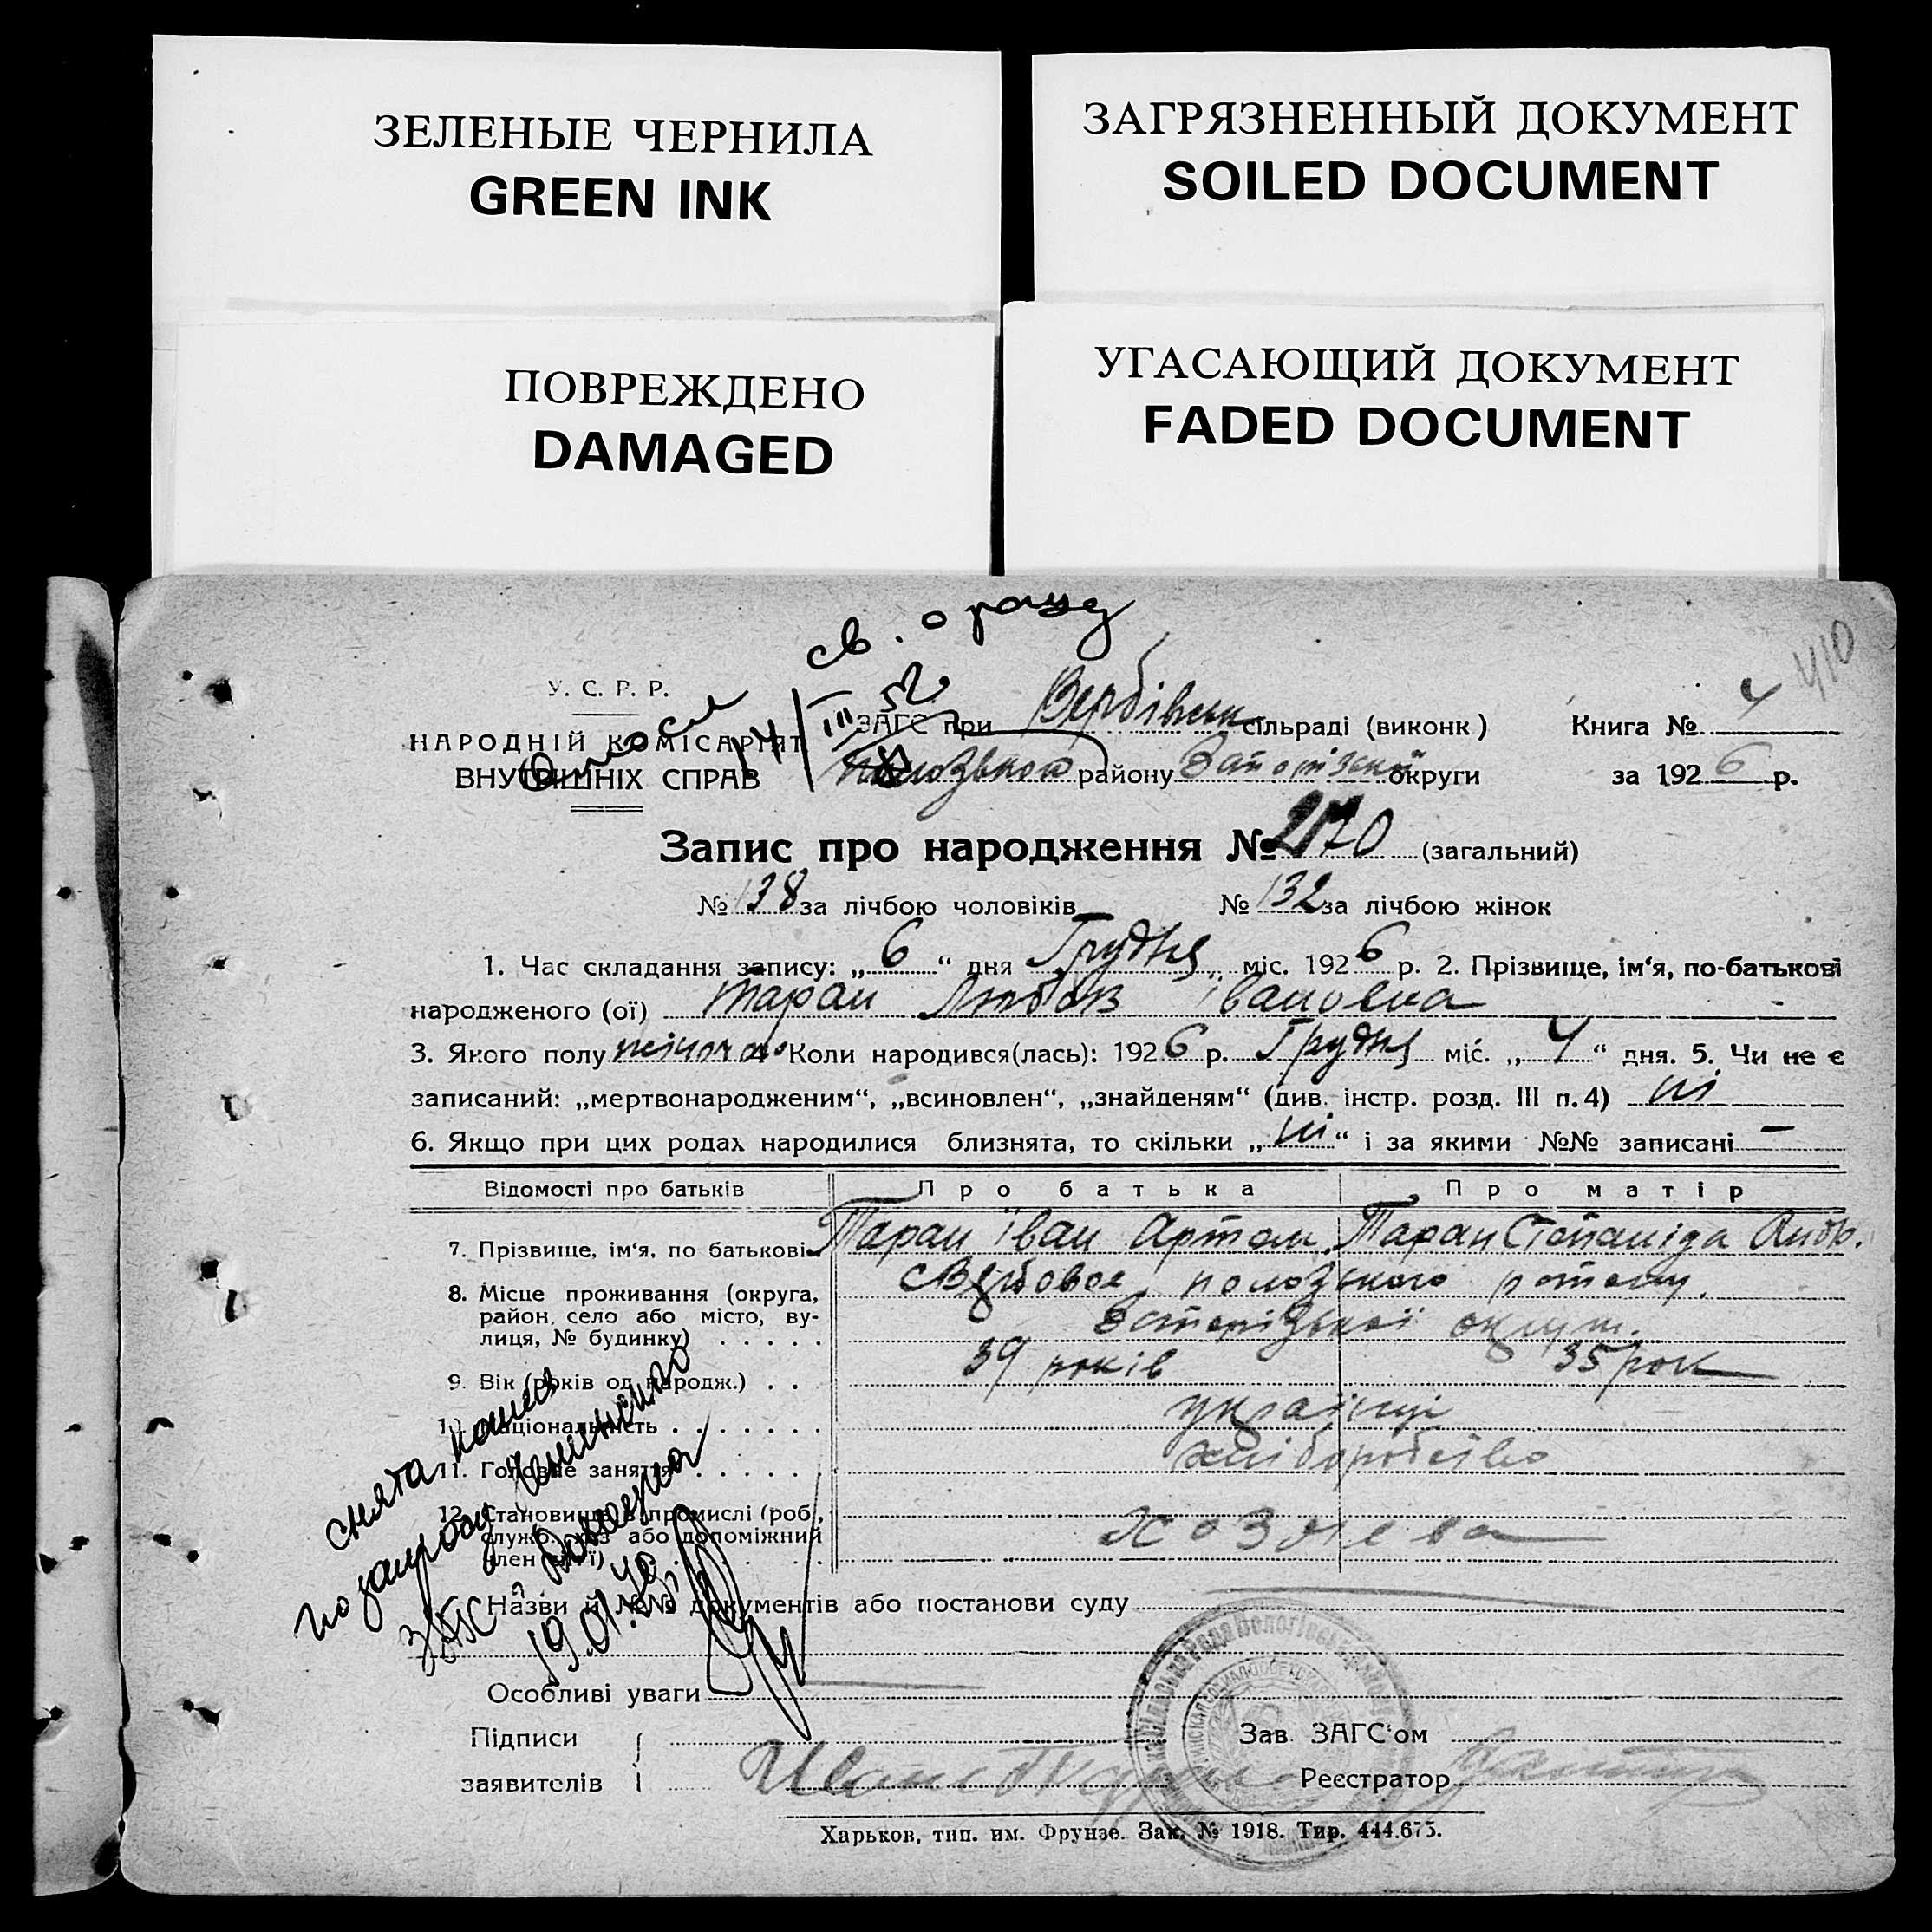 ЗЕЛЕНЫЕ ЧЕРНИЛА
GREEN INK
ЗАГРЯЗНЕННЫЙ ДОКУМЕНТ
SOILED DOCUMENT
ПОВРЕЖДЕНО
DAMAGED
УГАСАЮЩИЙ ДОКУМЕНТ
FADED DOCUMENT
410
св. о
14/III 52
У. С. Р. Р.
НАРОДНІЙ КОМІСАРІЯТ
ВНУТРІШНІХ СПРАВ
ЗАГС при Вербівськ сільраді (виконк)
району округи
Книга № 4
за 1926 р.
Запис про народження № 270 (загальний)
№ 138 за лічбою чоловіків № 132 за лічбою жінок
1. Час складання запису: „6“ дня Грудня міс. 1926 р. 2. Прізвище, ім‘я, по-батькові
народженого (ої) Таран Любов Івановна
3. Якого полу жіноча 4. Коли народився(лась): 1926 р. Грудня міс. „4“ дня. 5. Чи не є
записаний: „мертвонародженим“, „всиновлен“, „знайденям“ (див. інстр. розд. III п. 4) ні
6. Якщо при цих родах народилися близнята, то скільки „ні“ і за якими №№ записані —
Відомості про батьків Про батька Про матір
7. Прізвище, ім‘я, по батькові Таран Іван Артем. Таран Степаніда
8. Місце проживання (округа, район, село або місто, вулиця, № будинку) с Вербовое пологського
9. Вік (років од народж.) 39 років 35 рок
10. Національність українці
11. Головне заняття хліборобство
12. Становище в промислі (роб., служб., хаз. або допоміжний член сім‘ї) хозяева
Назви й №№ документів або постанови суду
Особливі уваги
Підписи
заявителів
Зав. ЗАГС‘ом
Реєстратор
снята копия
по запросу
ЗАГС
19.01.
Харьков, тип. им. Фрунзе. Зак. № 1918. Тир. 444.675.